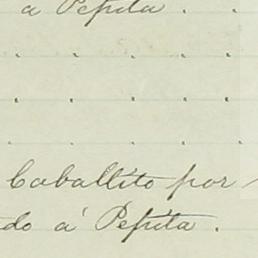 a Pepita . .
. . . . .
. . . . .
. . . . .
Caballito por
do á Pepita .